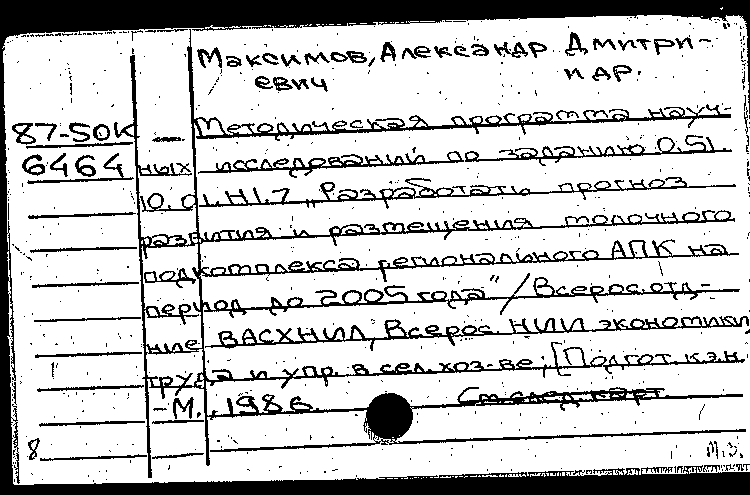 Максимов, Александр Дмитри-
евич и др.
87-50К — Методическая программа науч-
6464 ных исследований по заданию 0.51.
10.01.Н1.7 „Разработать прогноз
развития и размещения молочного
подкомплекса регионального АПК на
период до 2005 года" / Всерос. отд-
ние ВАСХНИЛ, Всерос. НИИ экономики
труда и упр. в сел. хоз-ве; [Подгот. к.э.н.
-М., 1986. См. след. карт
8 М.З.